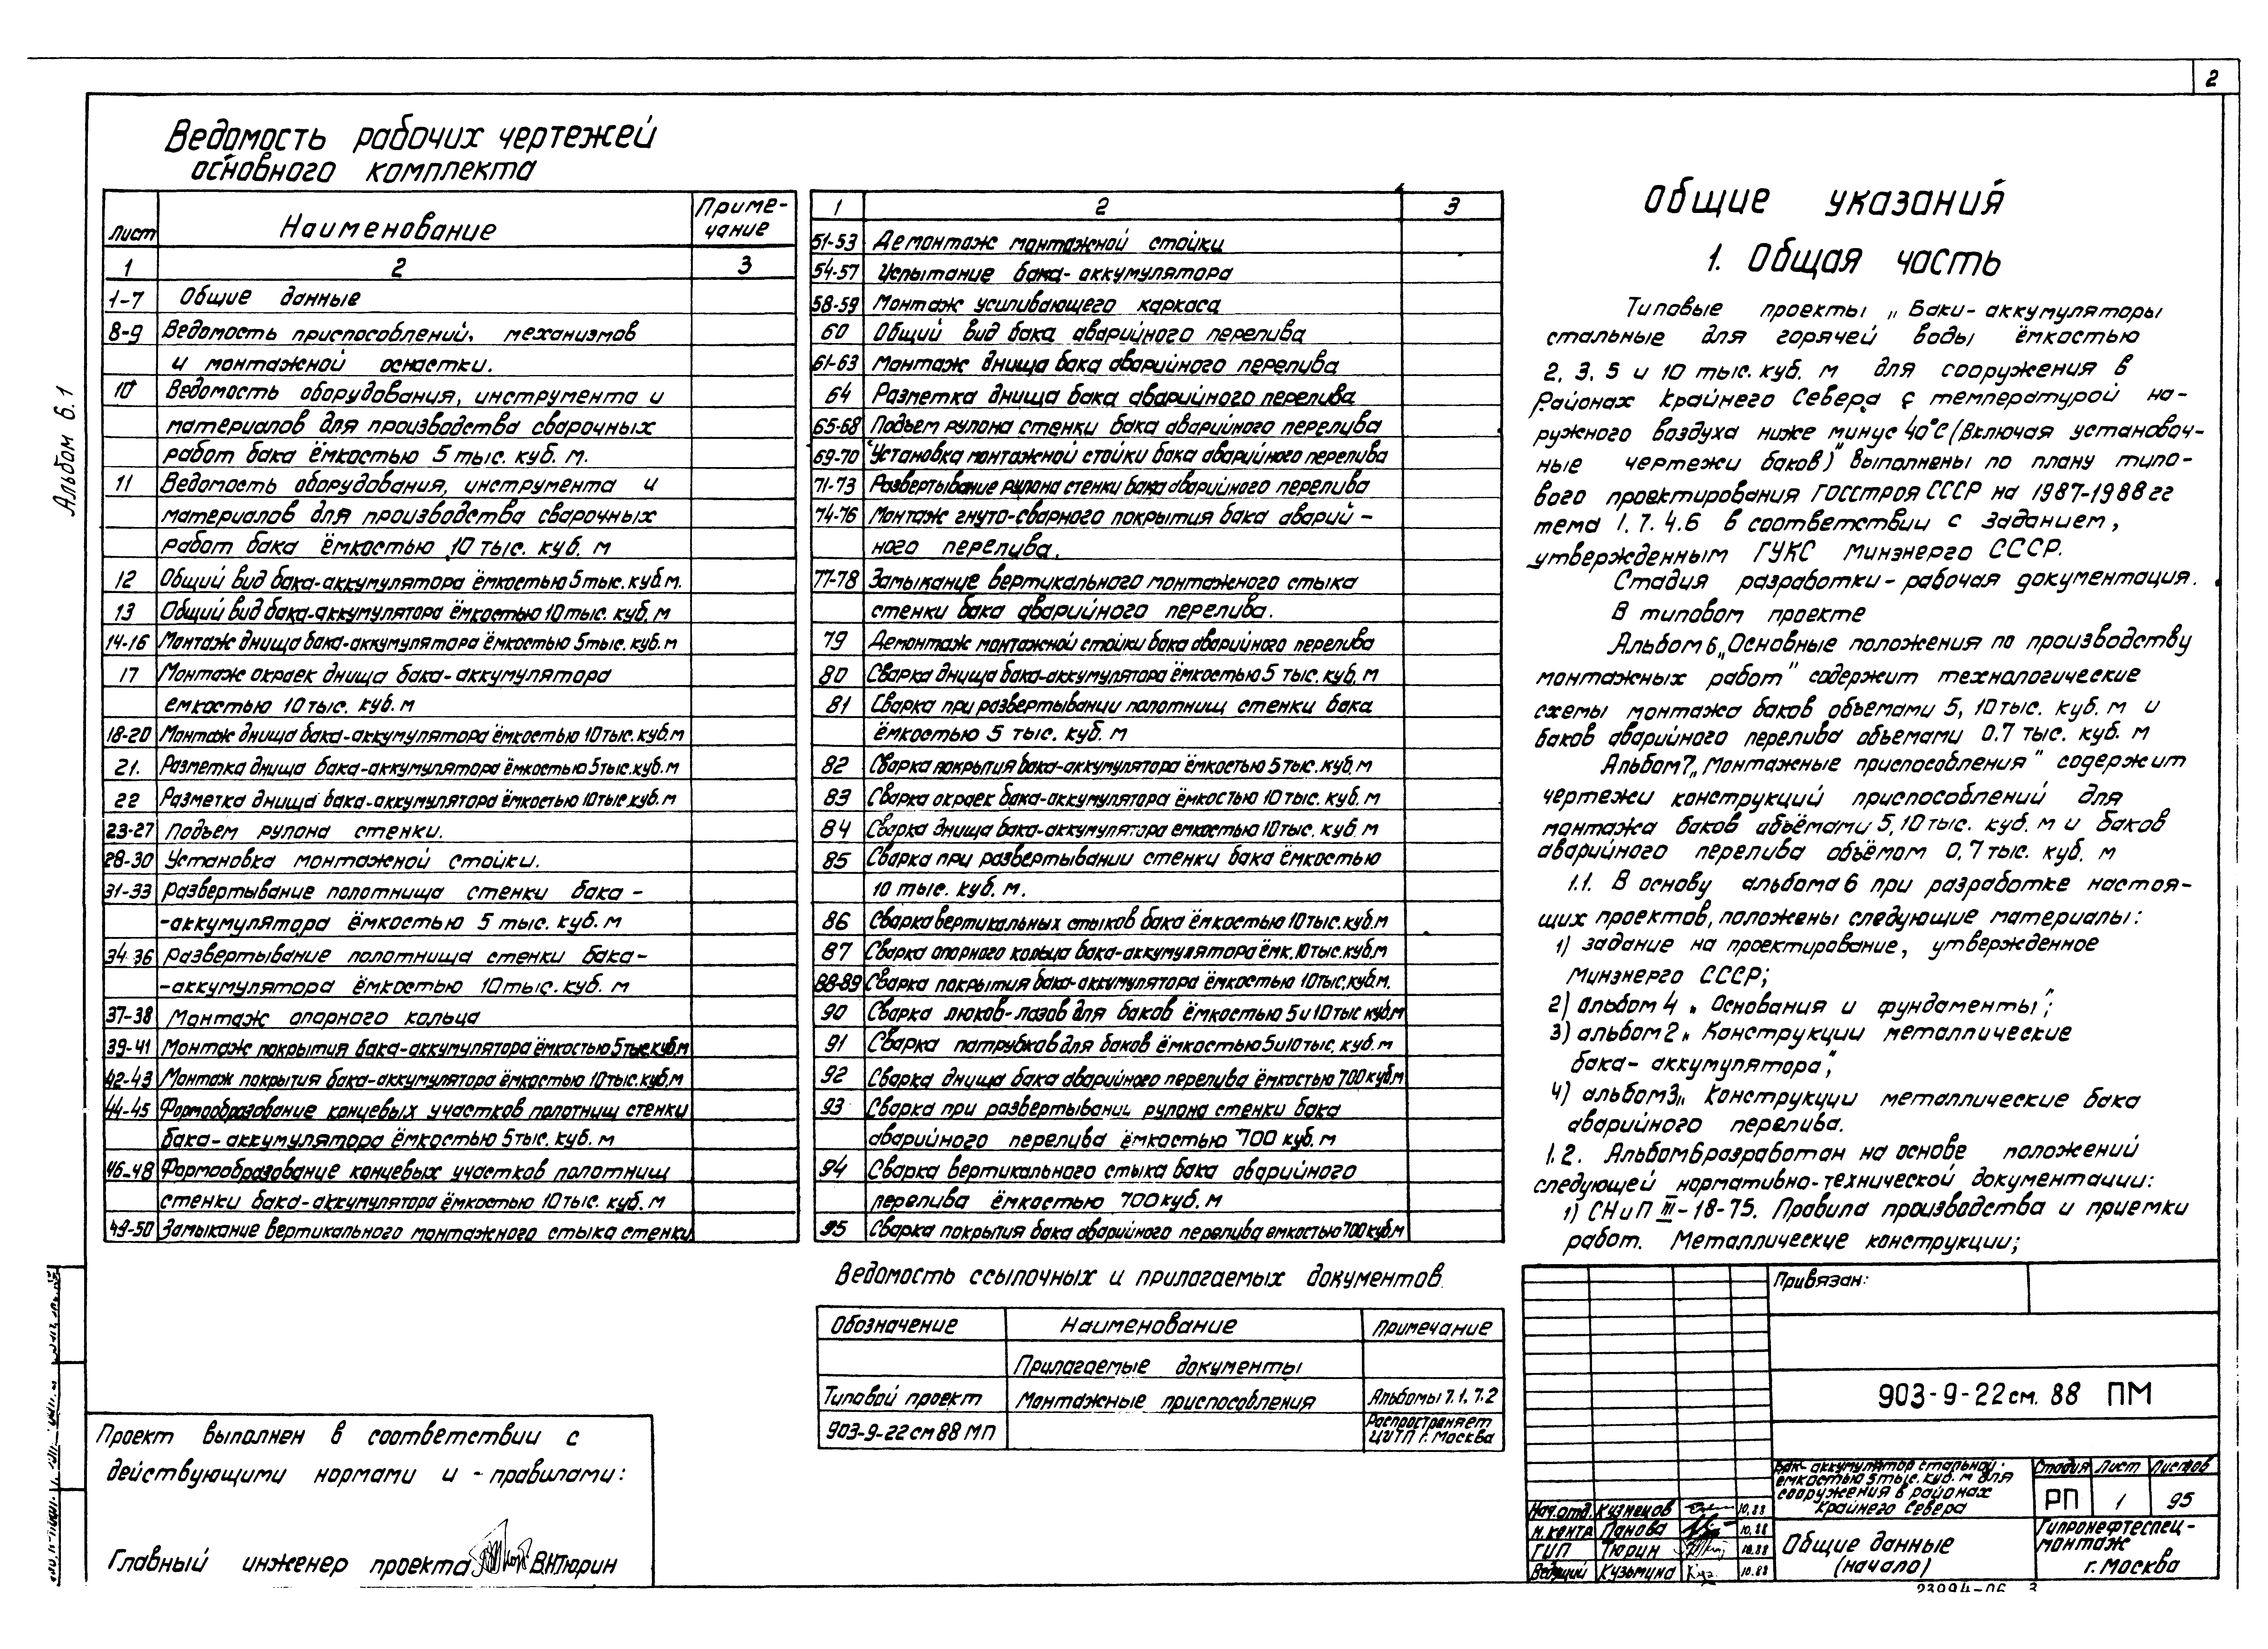 2
Альбом 6.1
Ведомость рабочих чертежей
основного комплекта
Лист Наименование Приме-
чание
1 2 3
1-7 Общие данные
8-9 Ведомость приспособлений, механизмов
и монтажной оснастки.
10 Ведомость оборудования, инструмента и
материалов для производства сварочных
работ бака ёмкостью 5 тыс. куб. м.
11 Ведомость оборудования, инструмента и
материалов для производства сварочных
работ бака ёмкостью 10 тыс. куб. м
12 Общий вид бака-аккумулятора ёмкостью 5 тыс. куб. м.
13 Общий вид бака-аккумулятора ёмкостью 10 тыс. куб. м
14-16 Монтаж днища бака-аккумулятора ёмкостью 5 тыс. куб. м
17 Монтаж окраек днища бака-аккумулятора
емкостью 10 тыс. куб. м
18-20 Монтаж днища бака-аккумулятора ёмкостью 10 тыс. куб. м
21. Разметка днища бака-аккумулятора ёмкостью 5 тыс. куб. м
22 Разметка днища бака-аккумулятора ёмкостью 10 тыс куб. м
23-27 Подъем рулона стенки.
28-30 Установка монтажной стойки.
31-33 Развертывание полотнища стенки бака-
-аккумулятора ёмкостью 5 тыс. куб. м
34-36 Развертывание полотнища стенки бака-
-аккумулятора ёмкостью 10 тыс. куб. м
37-38 Монтаж опорного кольца
39-41 Монтаж покрытия бака-аккумулятора ёмкостью 5 тыс. куб. м
42-43 Монтаж покрытия бака-аккумулятора ёмкостью 10 тыс. куб. м
44-45 Формообразование концевых участков полотнищ стенки
бака-аккумулятора ёмкостью 5 тыс. куб. м
46-48 Формообразование концевых участков полотнищ
стенки бака-аккумулятора ёмкостью 10 тыс. куб. м
49-50 Замыкание вертикального монтажного стыка стенки
1 2 3
51-53 Демонтаж монтажной стойки
54-57 Испытание бака-аккумулятора
58-59 Монтаж усиливающего каркаса
60 Общий вид бака аварийного перелива
61-63 Монтаж днища бака аварийного перелива
64 Разметка днища бака аварийного перелива
65-68 Подъем рулона стенки бака аварийного перелива
69-70 Установка монтажной стойки бака аварийного перелива
71-73 Развертывание рулона стенки бака аварийного перелива
74-76 Монтаж гнуто-сварного покрытия бака аварий-
ного перелива.
77-78 Замыкание вертикального монтажного стыка
стенки бака аварийного перелива.
79 Демонтаж монтажной стойки бака аварийного перелива
80 Сварка днища бака-аккумулятора ёмкостью 5 тыс. куб. м
81 Сварка при развертывании полотнищ стенки бака
ёмкостью 5 тыс. куб. м
82 Сварка покрытия бака-аккумулятора ёмкостью 5 тыс. куб. м
83 Сварка окраек бака-аккумулятора ёмкостью 10 тыс. куб. м
84 Сварка днища бака-аккумулятора емкостью 10 тыс. куб. м
85 Сварка при развертывании стенки бака ёмкостью
10 тыс. куб. м.
86 Сварка вертикальных стыков бака ёмкостью 10 тыс. куб. м
87 Сварка опорного кольца бака-аккумулятора ёмк. 10 тыс. куб. м
88-89 Сварка покрытия бака-аккумулятора ёмкостью 10 тыс. куб. м.
90 Сварка люков-лазов для баков ёмкостью 5 и 10 тыс куб. м
91 Сварка патрубков для баков ёмкостью 5 и 10 тыс. куб. м
92 Сварка днища бака аварийного перелива ёмкостью 700 куб. м
93 Сварка при развертывании рулона стенки бака
аварийного перелива ёмкостью 700 куб. м
94 Сварка вертикального стыка бака аварийного
перелива ёмкостью 700 куб. м
95 Сварка покрытия бака аварийного перелива емкостью 700 куб. м
Ведомость ссылочных и прилагаемых документов.
Обозначение Наименование Примечание
Прилагаемые документы
Типовой проект Монтажные приспособления Альбомы 7.1, 7.2
903-9-22 см 88 МП Распространяет
ЦИТП г. Москва
Проект выполнен в соответствии с
действующими нормами и - правилами:
Главный инженер проекта В.Н.Тюрин
Общие указания
1. Общая часть
Типовые проекты „Баки-аккумуляторы
стальные для горячей воды ёмкостью
2, 3, 5 и 10 тыс. куб. м для сооружения в
районах Крайнего Севера с температурой на-
ружного воздуха ниже минус 40°С (включая установоч-
ные чертежи баков)" выполнены по плану типо-
вого проектирования Госстроя СССР на 1987-1988 гг
тема 1.7.4.6 в соответствии с заданием,
утвержденным ГУКС Минэнерго СССР.
Стадия разработки - рабочая документация.
В типовом проекте
Альбом 6 „Основные положения по производству
монтажных работ" содержит технологические
схемы монтажа баков объемами 5, 10 тыс. куб. м и
баков аварийного перелива объемами 0.7 тыс. куб. м
Альбом 7 „Монтажные приспособления" содержит
чертежи конструкций приспособлений для
монтажа баков объёмами 5, 10 тыс. куб. м и баков
аварийного перелива объёмом 0,7 тыс. куб. м
1.1. В основу альбома 6 при разработке настоя-
щих проектов, положены следующие материалы:
1) задание на проектирование, утвержденное
Минэнерго СССР;
2) альбом 4 „Основания и фундаменты";
3) альбом 2 „Конструкции металлические
бака-аккумулятора";
4) альбом 3 „Конструкции металлические бака
аварийного перелива.
1.2. Альбом 6 разработан на основе положений
следующей нормативно-технической документации:
1) СНиП III-18-75. Правила производства и приемки
работ. Металлические конструкции;
Привязан:
903-9-22 см. 88 ПМ
Бак-аккумулятор стальной
ёмкостью 5 тыс. куб. м для
сооружения в районах
Крайнего Севера
Стадия Лист Листов
РП 1 95
Нач. отд. Кузнецов 10.88
Н. контр Панова 10.88
ГИП Тюрин 10.88
Ведущий Кузьмина 10.88
Общие данные
(начало)
Гипронефтеспец-
монтаж
г. Москва
23994-06 3